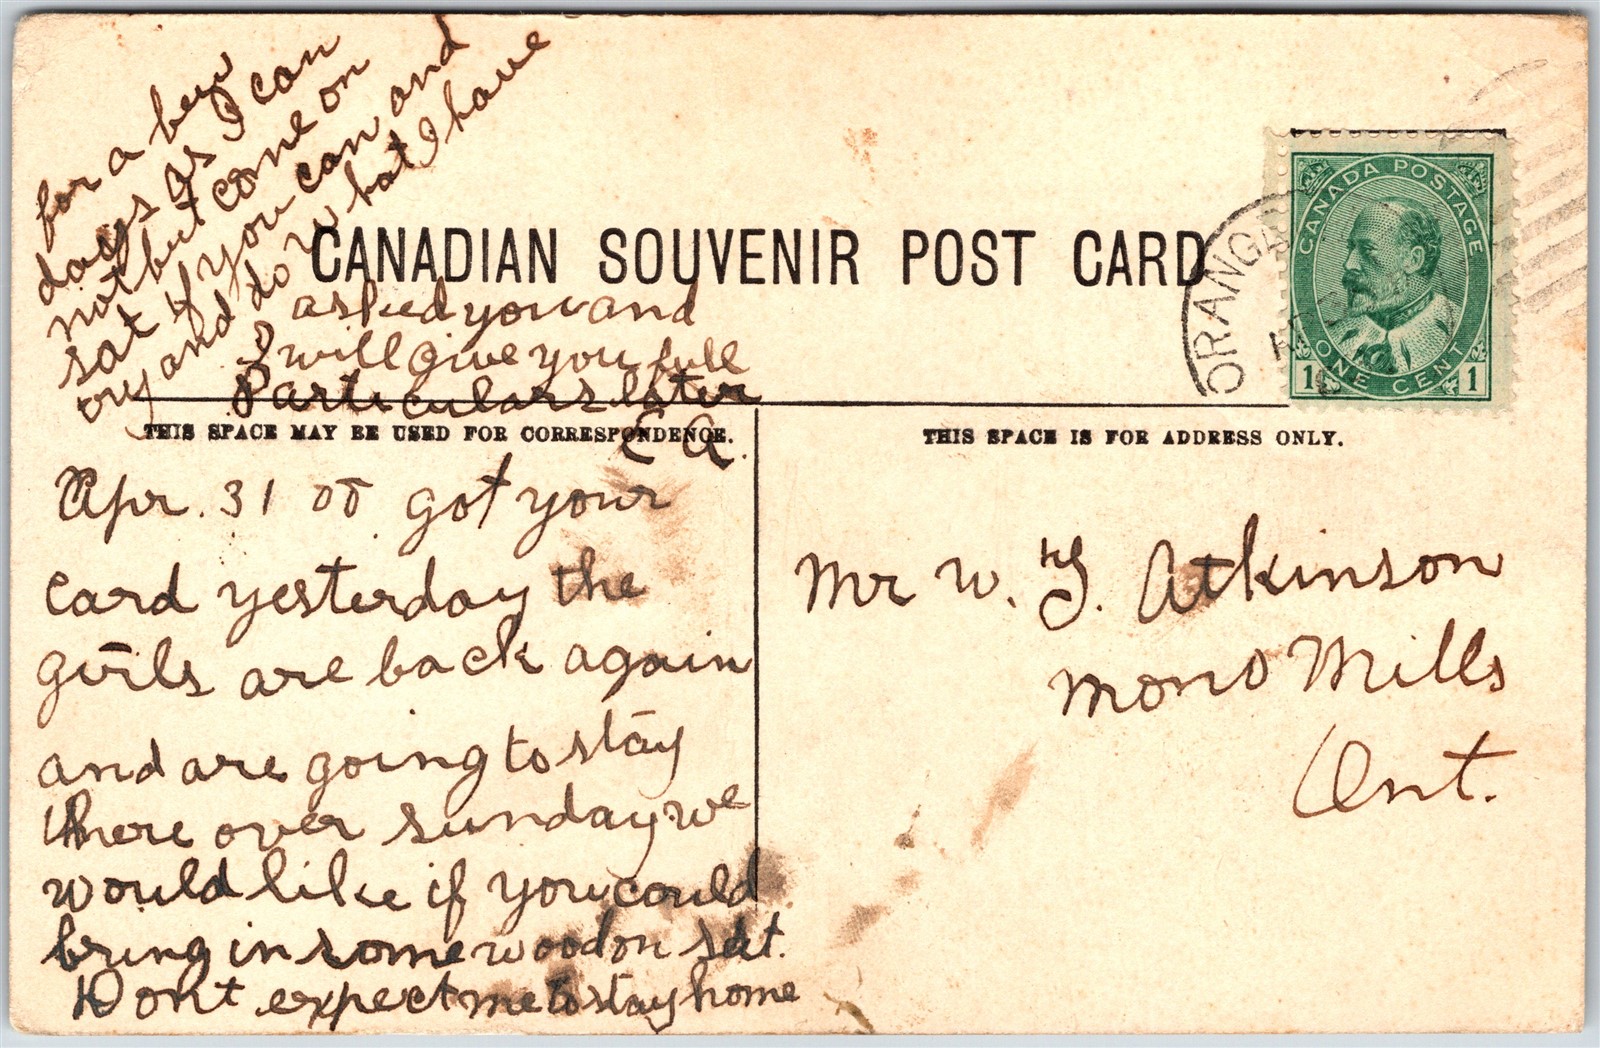 CANADIAN SOUVENIR POST CARD
THIS SPACE MAY BE USED FOR CORRESPONDENCE.
Apr. 31 08 got your
card yesterday the
girls are back again
and are going to stay
there over sunday we
would like if you could
bring in some wood on sat.
Dont expect me to stay home
for a few
days as I can
not but come on
sat if you can and
try and do what I have
asked you and
I will give you full
Particulars later
E A.
THIS SPACE IS FOR ADDRESS ONLY.
Mr W. J. Atkinson
Mono Mills
Ont.
CANADA POSTAGE
ONE CENT
1 1
ORANG